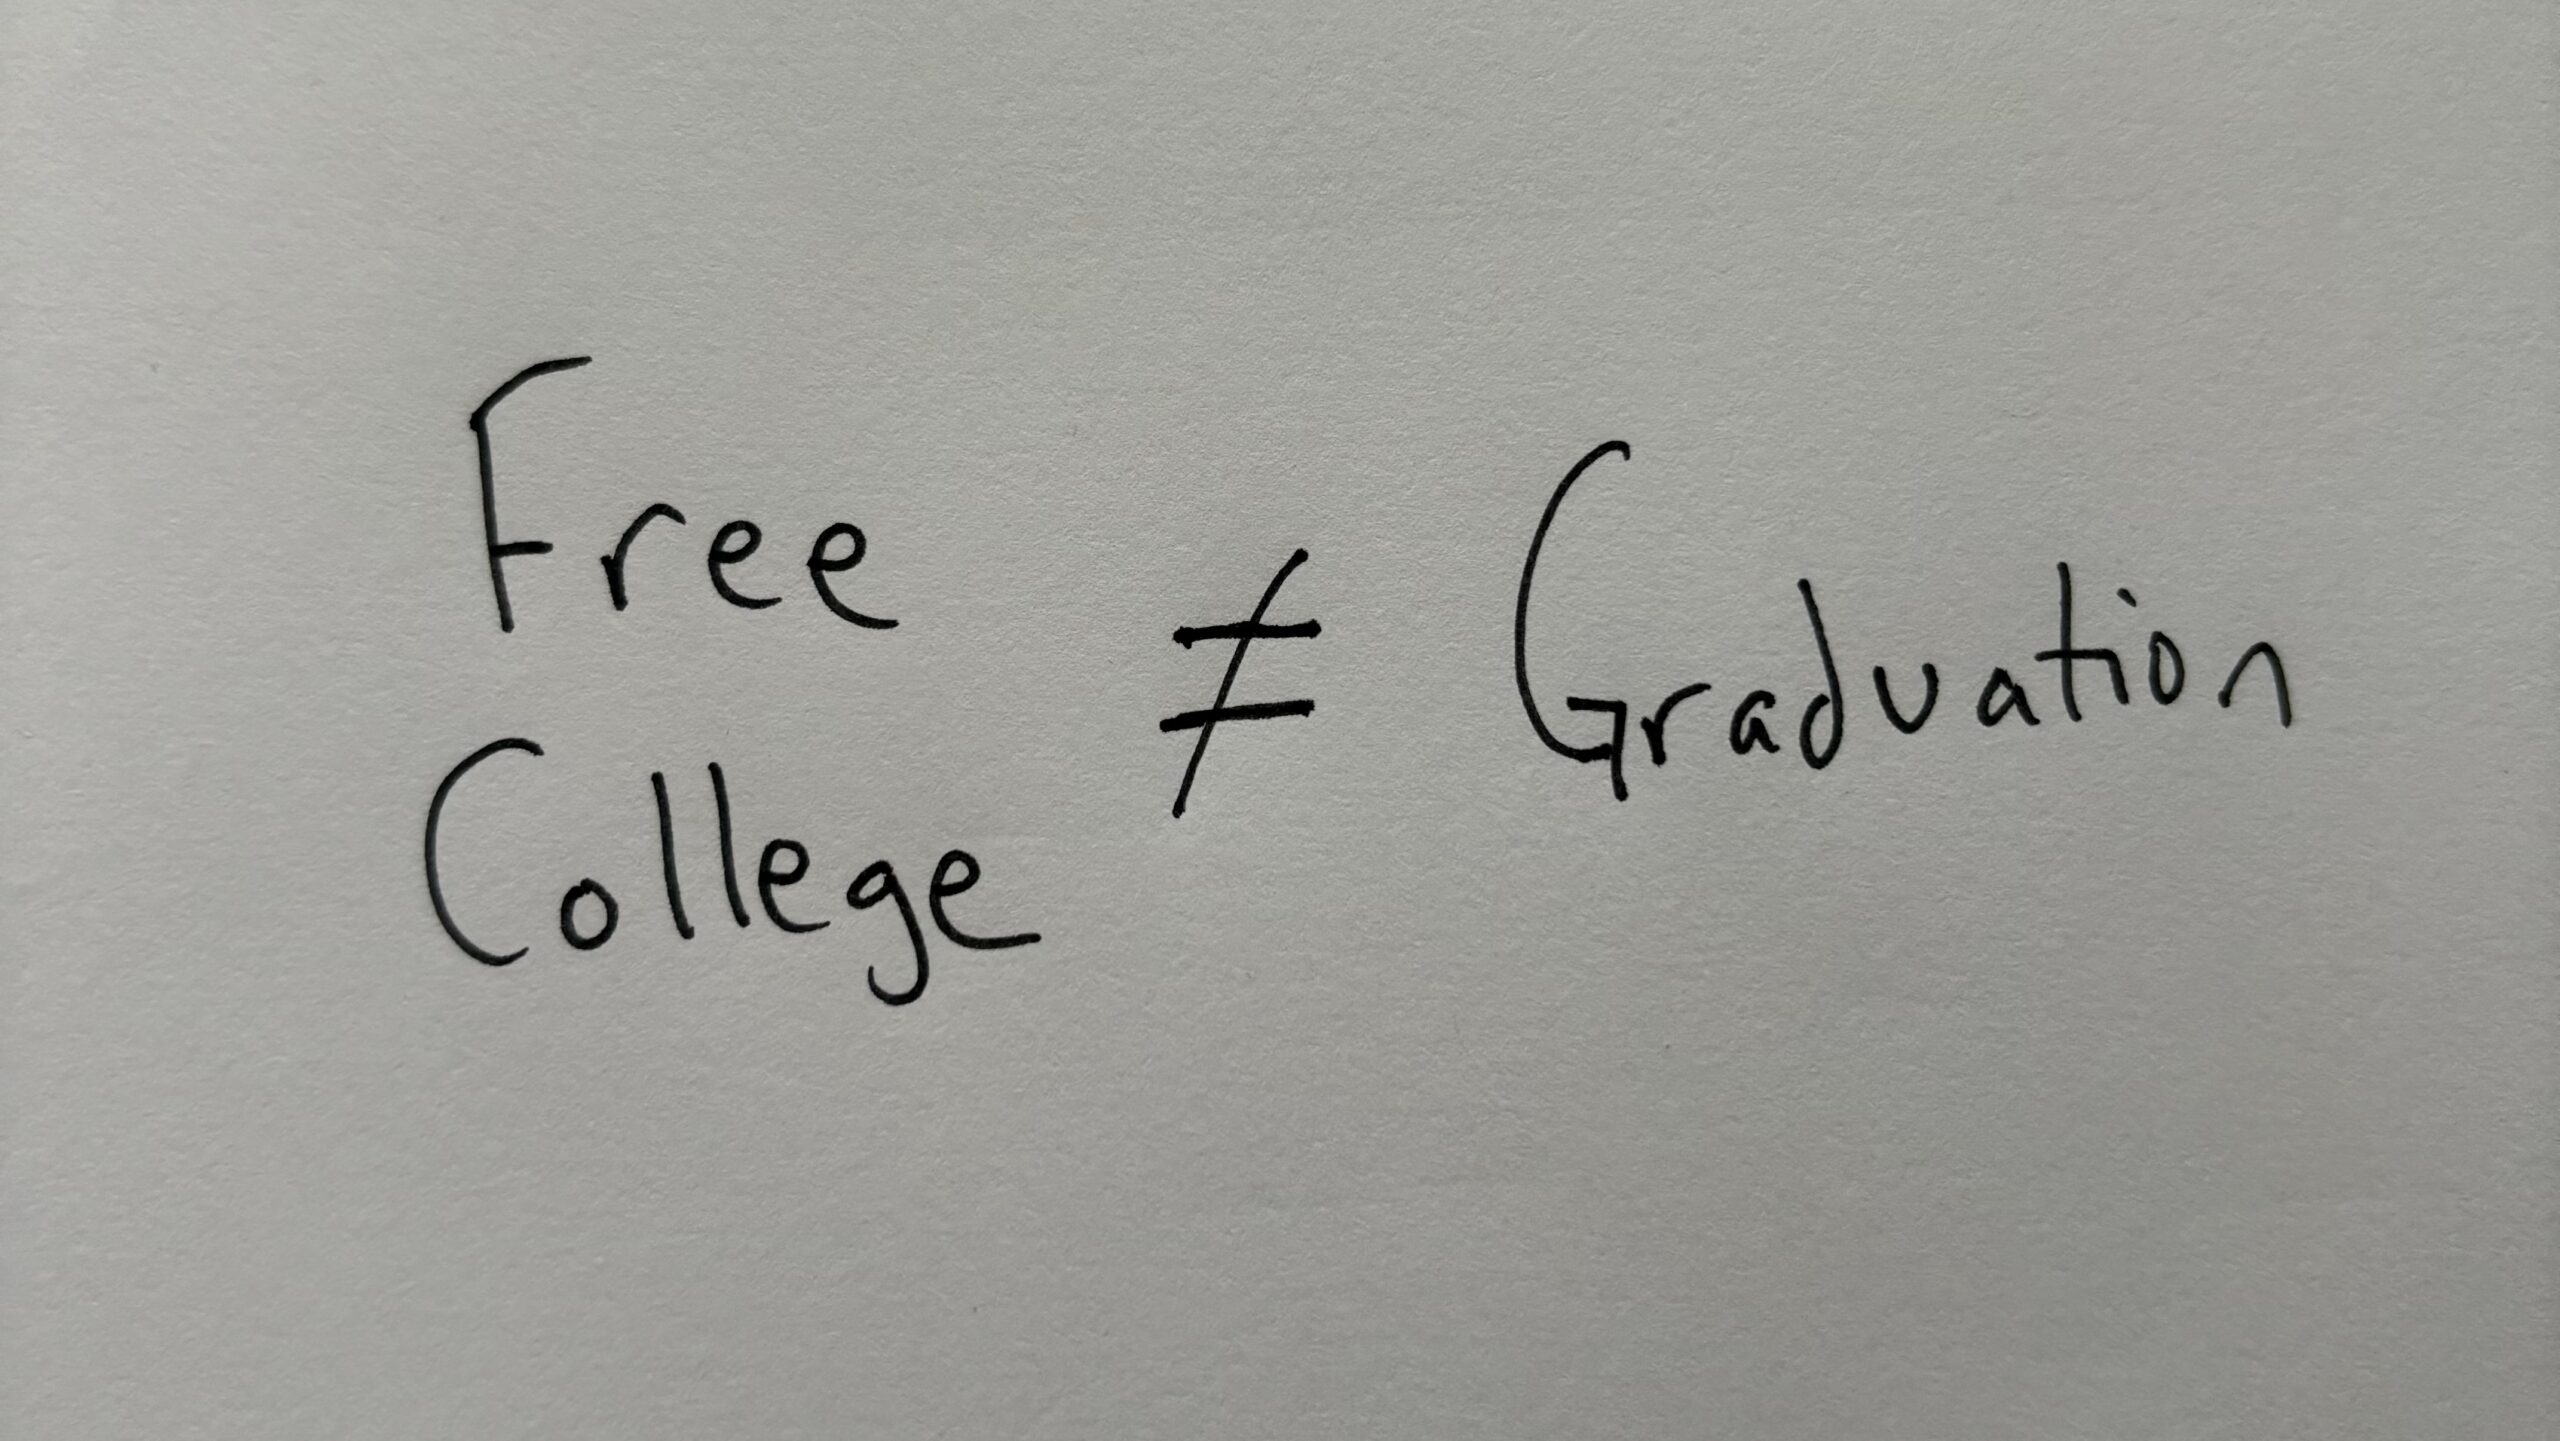 Free
College ≠ Graduation